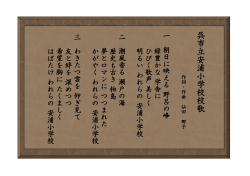 呉市立安浦小学校校歌
作詞・作曲 山田 郁子
一 朝日に映える 野呂の峰
緑豊かな 学舎に
ひびく歌声 美しく
明るい われらの 安浦小学校
二 潮風香る 瀬戸の海
歴史も古き 柏島
夢とロマンに つつまれた
かがやく われらの 安浦小学校
三 わきたつ雲を 仰ぎ見て
友と絆を 深めつつ
希望を胸に たくましく
はばたけ われらの 安浦小学校